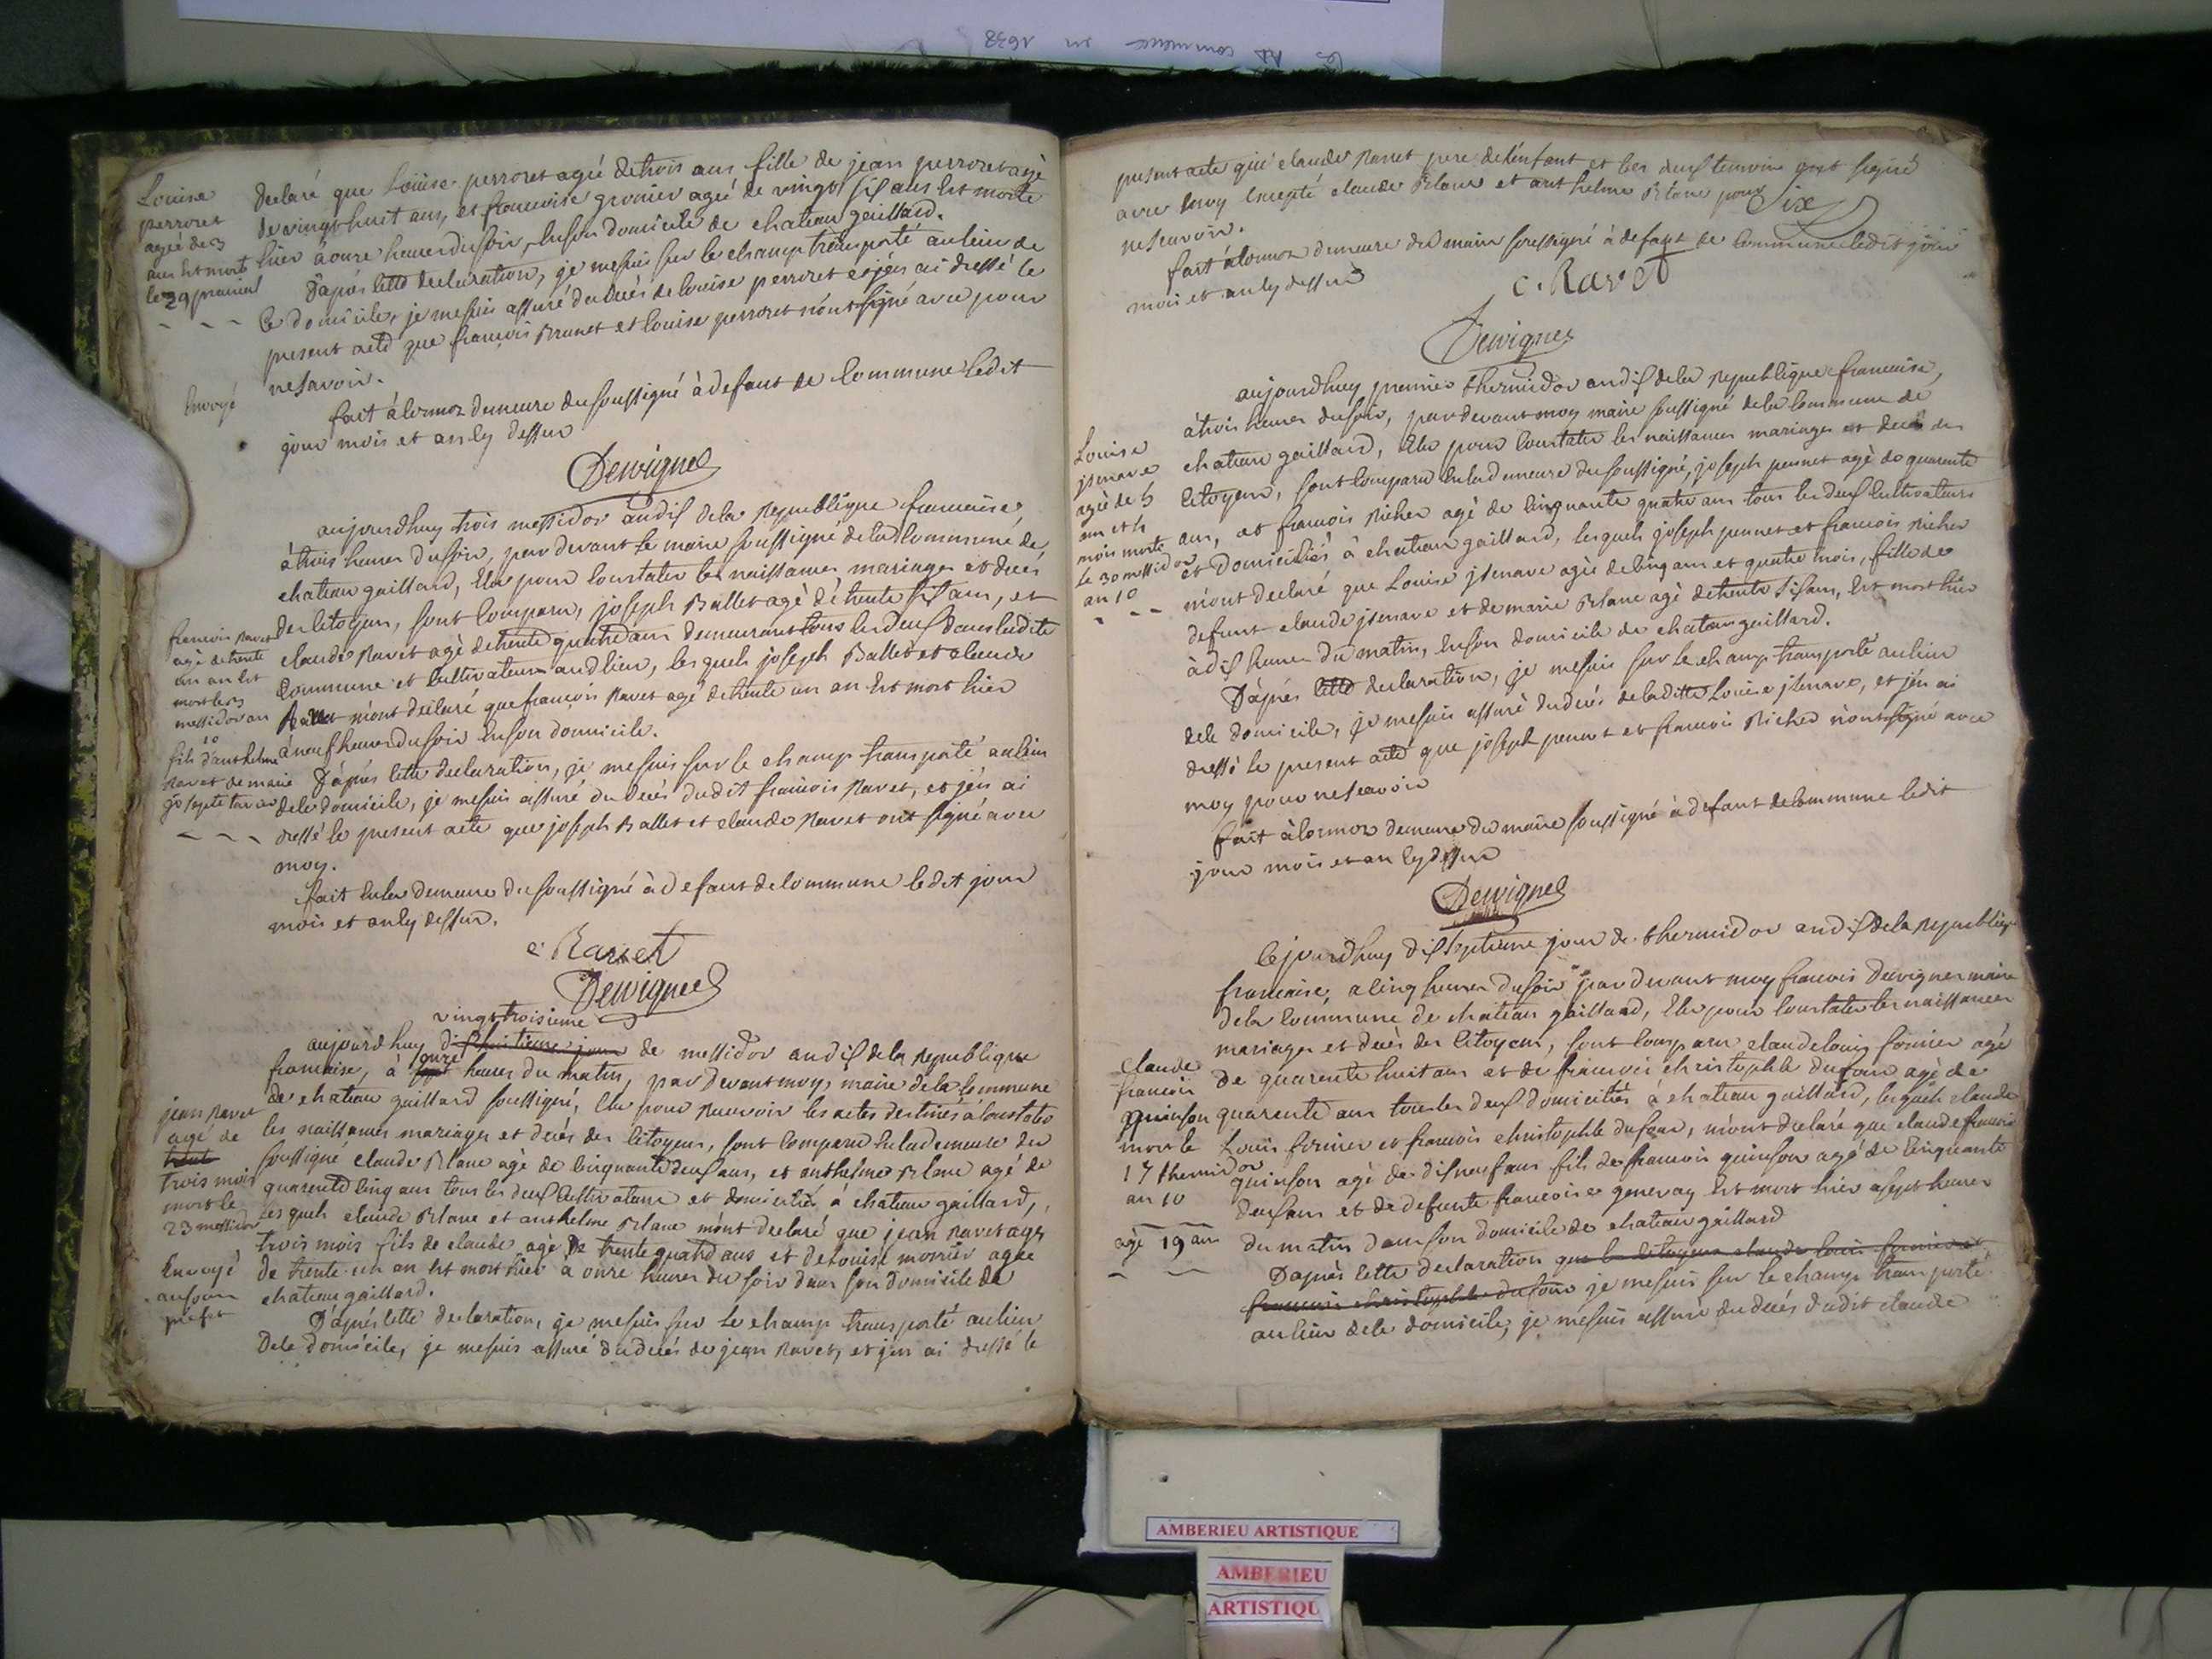 Les AD commence en 1698
Louise
perroret
agée de 3
ans est mort
le 29 prairial
Envoyé
declaré que Loüise perroret agié de trois ans fille de jean perroret agé
de vingt huit ans, et francoise gronier agié de vingt sis ans Est morte
hier à onze heures du soir, En son domicile de chateau gaillard.
D'après cette declaration, je me suis sur le champ transporté au lieu de
Ce domicile, je me suis assuré du decès de louise perroret et j'en ai dressé le
present acte que françois Brunet et Louise perroret n'ont signé avec pour
ne savoir.
fait à Cormoz demeure du soussigné à defaut de Commune ledit
jour mois et an cy dessus
Dervignes
aujourdhuy trois messidor an dis de la Republique francaise
à trois heures du soir, par devant le maire soussigné de lad Commune de
chateau gaillard, Elu pour Constater les naissances mariages et decès
des Citoyens, sont Comparu, joseph Ballet agé de trente sis ans, et
claude Ravet agé de trente quatre ans demeurant tous les deus dans ladite
Commune et Cultivateurs aud lieu, les quels joseph Ballet et claude
Ravet m'ont declaré que francois Ravet agé de trente un an Est mort hier
à neuf heures du soir En son domicile.
D'après cette declaration, je me suis sur le champ transporté au lieu
de le domicile, je me suis assuré du decès dudit francois Ravet, et j'en ai
dressé le present acte que joseph Ballet et claude Ravet ont signé avec
moy.
fait En la demeure du soussigné à defaut de commune ledit jour
mois et an cy dessus.
francois Ravet
agé de trente
un an Est
mort le 3
messidor an
10
fils d'anthelme
Ravet de marie
josepte
c. Ravet
Dervignes
vingt troisieme
aujourdhuy dishuitieme jour de messidor an dis de la Republique
francaise, à onze heures du matin, par devant moy, maire de la Commune
de chateau gaillard soussigné, Elu pour Recevoir les actes destinés à Constater
les naissances mariages et decès des Citoyens, sont Comparu En la demeure du
soussigné claude Blanc agé de Cinquante deus ans, et anthelme Blanc agé de
quarente Cinq ans tous les deus Cultivateurs et domiciliés à chateau gaillard,
Les quels claude Blanc et anthelme Blanc m'ont declaré que jean Ravet agé
trois mois fils de claude agé de trente quatre ans et de Louise monier agée
de trente un an Est mort hier à onze heures du soir dans son domicile de
chateau gaillard.
D'après cette declaration, je me suis sur le champ transporté au lieu
De le domicile, je me suis assuré du decès de jean Ravet, et j'en ai dressé le
jean Ravet
agé de
trente
trois mois
mort le
23 messidor
Envoyé
au sous
prefet
present acte que claude Ravet pere de l'enfant et les deus temoins ont signé
avec moy Excepté claude Blanc et anthelme Blanc pour Six
ne scavoir.
fait à Cormoz demeure du maire soussigné à defaut de Commune ledit jour
mois et an cy dessus
c. Ravet
Dervignes
aujourdhuy premier thermidor an dis de la Republique francaise,
à trois heures du soir, par devant moy maire soussigné de la Commune de
chateau gaillard, Elu pour Constater les naissances mariages et decès des
Citoyens, sont Comparu En la demeure du soussigné, joseph pennet agé de quarente
ans, et francois Richer agé de Cinquante quatre ans tous les deus Cultivateurs
et Domiciliés à chateau gaillard, les quels joseph pennet et francois Richer
m'ont declaré que Louise jsenave agée de Cinq ans et quatre mois, fille de
defunt claude jsenave et de marie Blanc agé de trente sis ans, Est mort hier
à dis heures du matin, En son domicile de chateau gaillard.
D'après cette declaration, je me suis sur le champ transporté au lieu
de le domicile, je me suis assuré du decès de laditte Louise jsenave, et j'en ai
dressé le present acte que joseph pennet et francois Richer n'ont signé avec
moy pour ne scavoir
fait à Cormoz demeure du maire soussigné à defaut de Commune ledit
jour mois et an cy dessus
Louise
jsenave
agée de 5
ans et 4
mois morte
le 30 messidor
an 10
Dervignes
Cejourdhuy dis septieme jour de thermidor an dis de la Republique
francaise, a Cinq heures du soir par devant moy francois Dervignes maire
de la Commune de chateau gaillard, Elu pour Constater les naissances
mariages et decès des Citoyens, sont Comparu claude louis fornier agé
de quarente huit ans et de francois christophle dufour agé de
quarente ans tous les deus domiciliés à chateau gaillard, les quels claude
Louis fornier et francois christophle dufour, m'ont declaré que claude francois
quinson agé de disneuf ans fils de francois quinson agé de Cinquante
deus ans et de defunte francoise genevay Est mort hier à sept heures
du matin dans son domicile de chateau gaillard
D'après cette declaration que le Citoyens claude louis fornier et
francois christophle dufour je me suis sur le champ transporté
au lieu de le domicile, je me suis assuré du decès dudit claude
Claude
francois
quinson
mort le
17 thermidor
an 10
agé 19 ans
AMBERIEU ARTISTIQUE
AMBERIEU
ARTISTIQU